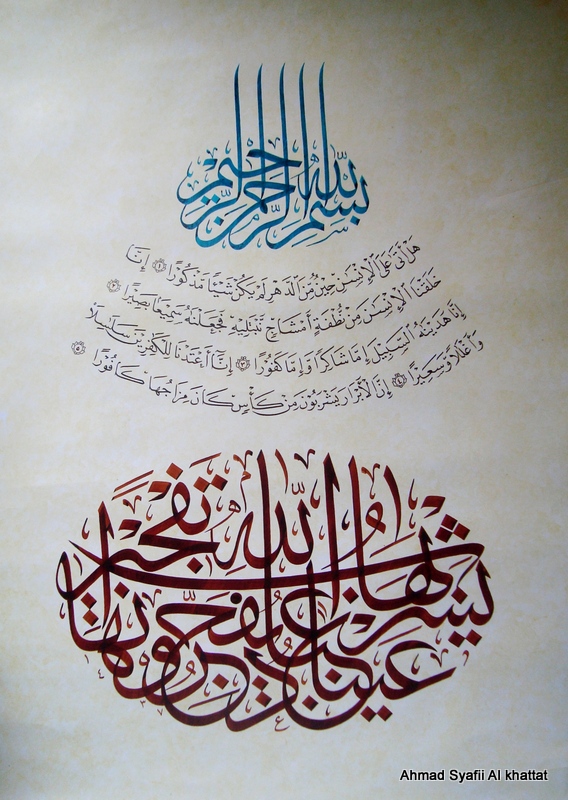 بِسْمِ اللّٰهِ الرَّحْمٰنِ الرَّحِيْمِ
هَلْ أَتَىٰ عَلَى ٱلْإِنسَٰنِ حِينٌ مِّنَ ٱلدَّهْرِ لَمْ يَكُن شَيْـًٔا مَّذْكُورًا ١ إِنَّا
خَلَقْنَا ٱلْإِنسَٰنَ مِن نُّطْفَةٍ أَمْشَاجٍ نَّبْتَلِيهِ فَجَعَلْنَٰهُ سَمِيعًۢا بَصِيرًا ٢
إِنَّا هَدَيْنَٰهُ ٱلسَّبِيلَ إِمَّا شَاكِرًا وَإِمَّا كَفُورًا ٣ إِنَّآ أَعْتَدْنَا لِلْكَٰفِرِينَ سَلَٰسِلَا۟
وَأَغْلَٰلًا وَسَعِيرًا ٤ إِنَّ ٱلْأَبْرَارَ يَشْرَبُونَ مِن كَأْسٍ كَانَ مِزَاجُهَا كَافُورًا ٥
عَيْنًا يَشْرَبُ بِهَا عِبَادُ اللّٰهِ يُفَجِّرُونَهَا تَفْجِيرًا
Ahmad Syafii Al khattat